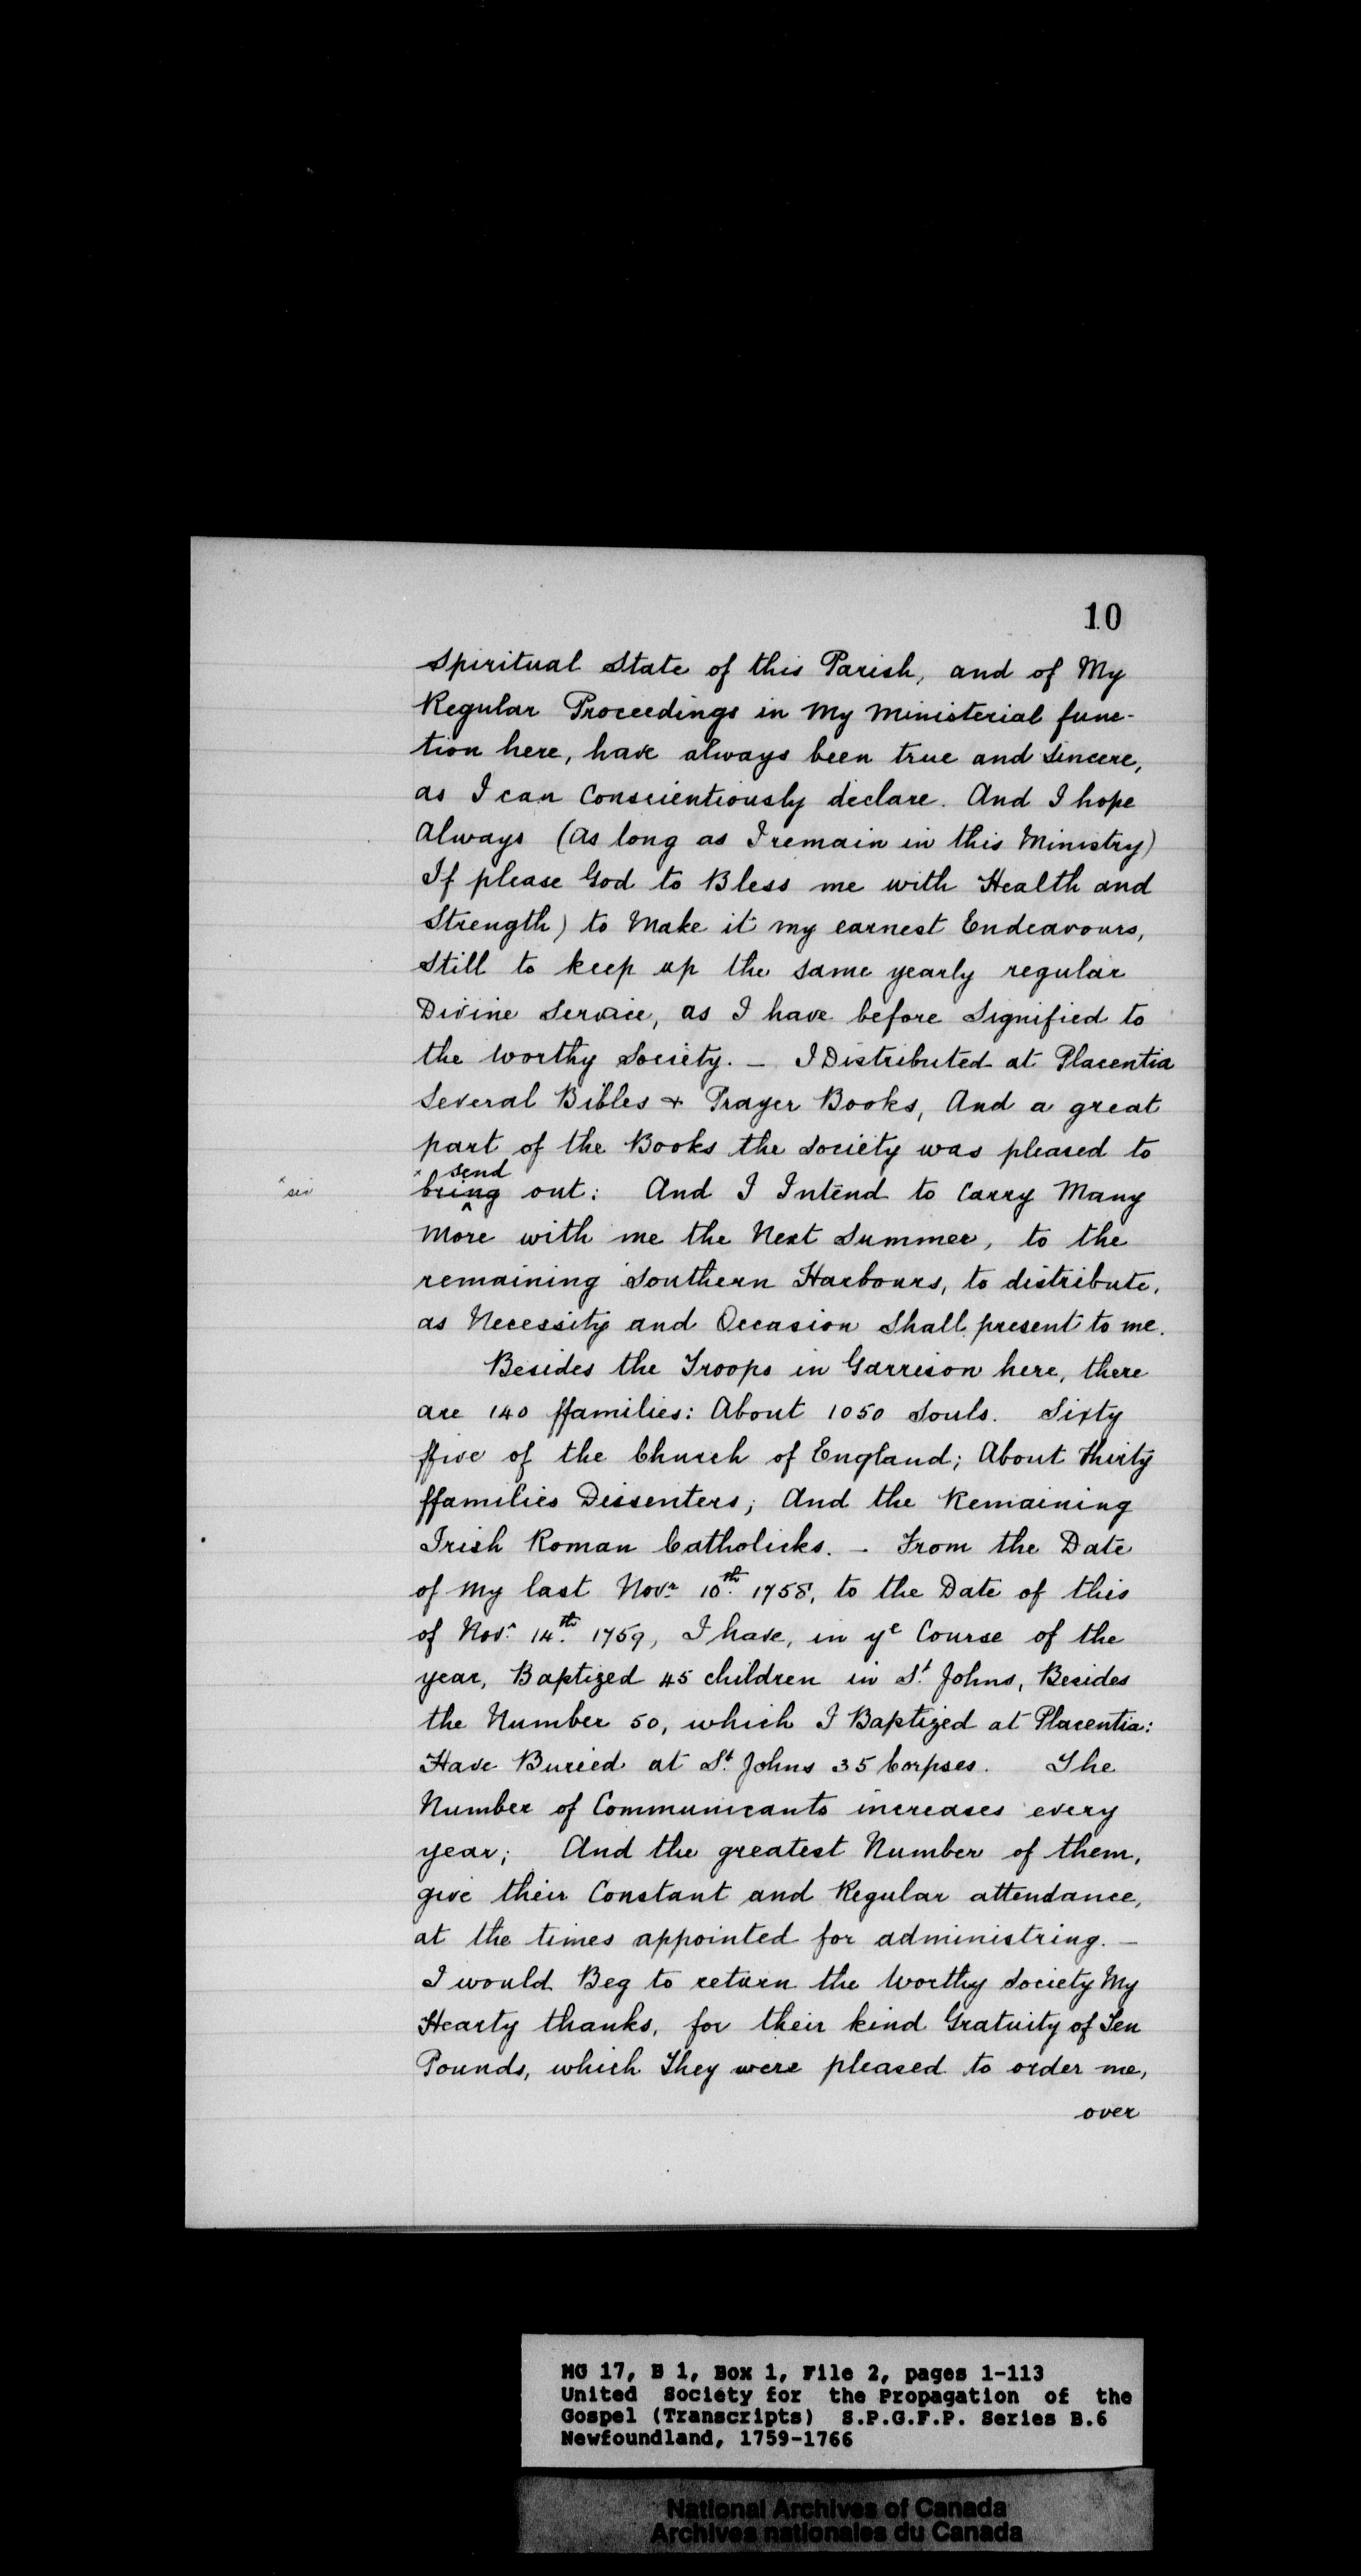 10
Spiritual State of this Parish, and of My
Regular Proceedings in My Ministerial func-
tion here, have always been true and Sincere,
as I can Conscientiously declare. And I hope
Always (As long as I remain in this Ministry)
If please God to Bless me with Health and
Strength) to Make it my earnest Endeavours,
Still to keep up the same yearly regular
Divine Service, as I have before Signified to
the Worthy Society. – I Distributed at Placentia
Several Bibles & Prayer Books, And a great
part of the Books the Society was pleased to
x send
x sic bring out: And I Intend to Carry Many
More with me the Next Summer, to the
remaining Southern Harbours, to distribute,
as Necessity and Occasion Shall present to me.
Besides the Troops in Garrison here, there
are 140 ffamilies: About 1050 Souls. Sixty
ffive of the Church of England; About Thirty
ffamilies Dissenters; And the Remaining
Irish Roman Catholicks. – From the Date
of My last Novr. 10th. 1758, to the Date of this
of Novr. 14th. 1759, I have, in ye Course of the
year, Baptized 45 children in St. Johns, Besides
the Number 50, which I Baptized at Placentia:
Have Buried at St. Johns 35 Corpses. The
Number of Communicants increases every
year; And the greatest Number of them,
give their Constant and Regular attendance,
at the times appointed for administring. –
I would Beg to return the Worthy Society My
Hearty thanks, for their kind Gratuity of Ten
Pounds, which They were pleased to order me,
over
MG 17, B 1, Box 1, File 2, pages 1-113
United Society for the Propagation of the
Gospel (Transcripts) S.P.G.F.P. Series B.6
Newfoundland, 1759-1766
National Archives of Canada
Archives nationales du Canada